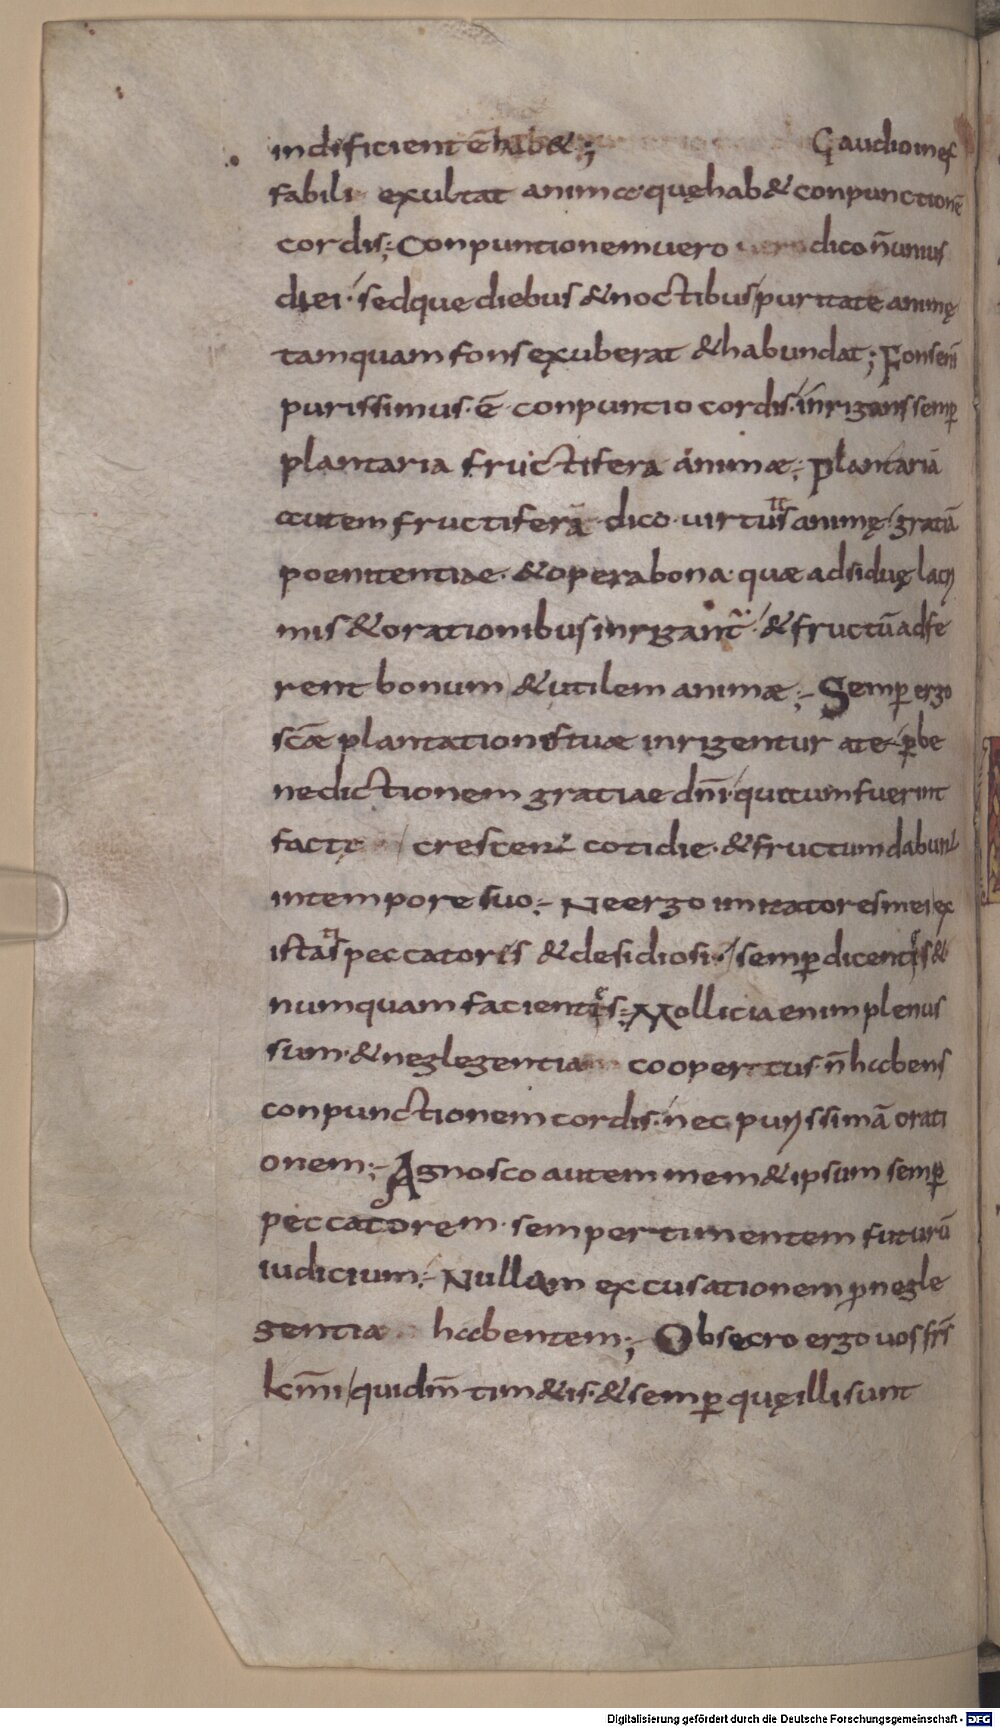 indificientē hab&; Gaudio inef
fabili exultat anima· quę hab& conpunctionē
cordis; Conpuntionem uero dico n̄ unius
diei· sed que diebus & noctibus puritate animę
tamquam fons exuberat & habundat; Fons enī
purissimus· ē conpunctio cordis· inrigans semꝑ
plantaria fructifera animæ; Plantariā
autem fructiferā dico· uirtus animę· gratiā
poenitentiae· & opera bona· quæ adsiduę lacri
mis & orationibus inrigant̃· & fructū adfe
rent bonum & utilem animæ; Semꝑ ergo
sc̄æ plantationis tuæ inrigentur a te· ꝑ be
nedictionem gratiae dn̄i· qui cum fuerint
factę crescent cotidie· & fructum dabunt
in tempore suo; Ne ergo imitatores mei ex
istatis peccatoris & desidiosi· semꝑ dicentes &
numquam facientes; Mollicia enim plenus
sum· & neglegentia coopertus· n̄ habens
conpunctionem cordis· nec purissimā orati
onem; Agnosco autem mem& ipsum semꝑ
peccatorem· semper timentem futurū
iudicium; Nullam excusationem ꝓ negle
gentia habentem; Obsecro ergo uos frs̄
km̄i qui dm̄ tim&is· & semꝑ quę illi sunt
Digitalisierung gefördert durch die Deutsche Forschungsgemeinschaft - DFG